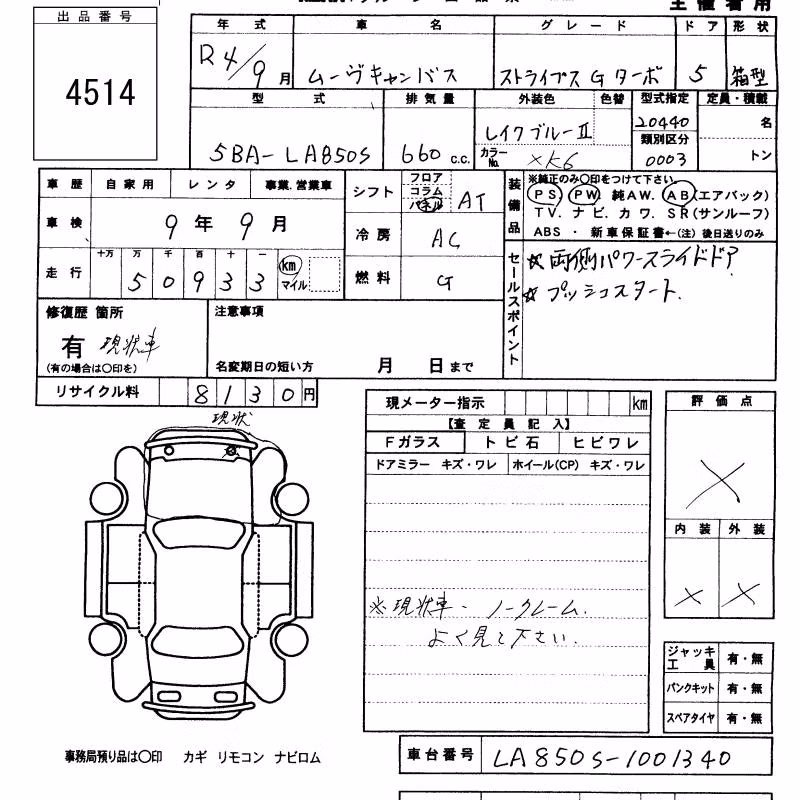 出品番号
4514
主催者用
年式 車名 グレード ドア 形状
R4/9月 ムーヴキャンバス ストライプス G ターボ 5 箱型
型式 排気量 外装色 色替 型式指定 定員・積載
5BA-LA850S 660 c.c. レイクブルーⅡ 20440 名
カラーNo. XK6 類別区分 0003 トン
車歴 自家用 レンタ 事業.営業車
車検 9年9月
走行 十万 万 千 百 十 一
50933 km マイル
シフト フロア コラム パネル AT
冷房 AC
燃料 G
装備品
※純正のみ〇印をつけて下さい。
PS. PW. 純AW. AB(エアバック)
TV. ナビ. カワ. SR(サンルーフ)
ABS ・ 新車保証書←(注)後日送りのみ
セールスポイント
☆両側パワースライドドア
☆プッシュスタート.
修復歴 箇所
有 現状車
(有の場合は〇印を)
注意事項
名変期日の短い方 月 日まで
リサイクル料 8130円
現状
現メーター指示 km
【査定員記入】
Fガラス トビ石 ヒビワレ
ドアミラー キズ・ワレ ホイール(CP) キズ・ワレ
※現状車. ノークレーム.
よく見て下さい.
評価点
X
内装 外装
X X
ジャッキ工具 有・無
パンクキット 有・無
スペアタイヤ 有・無
事務局預り品は〇印 カギ リモコン ナビロム
車台番号 LA850S-1001340